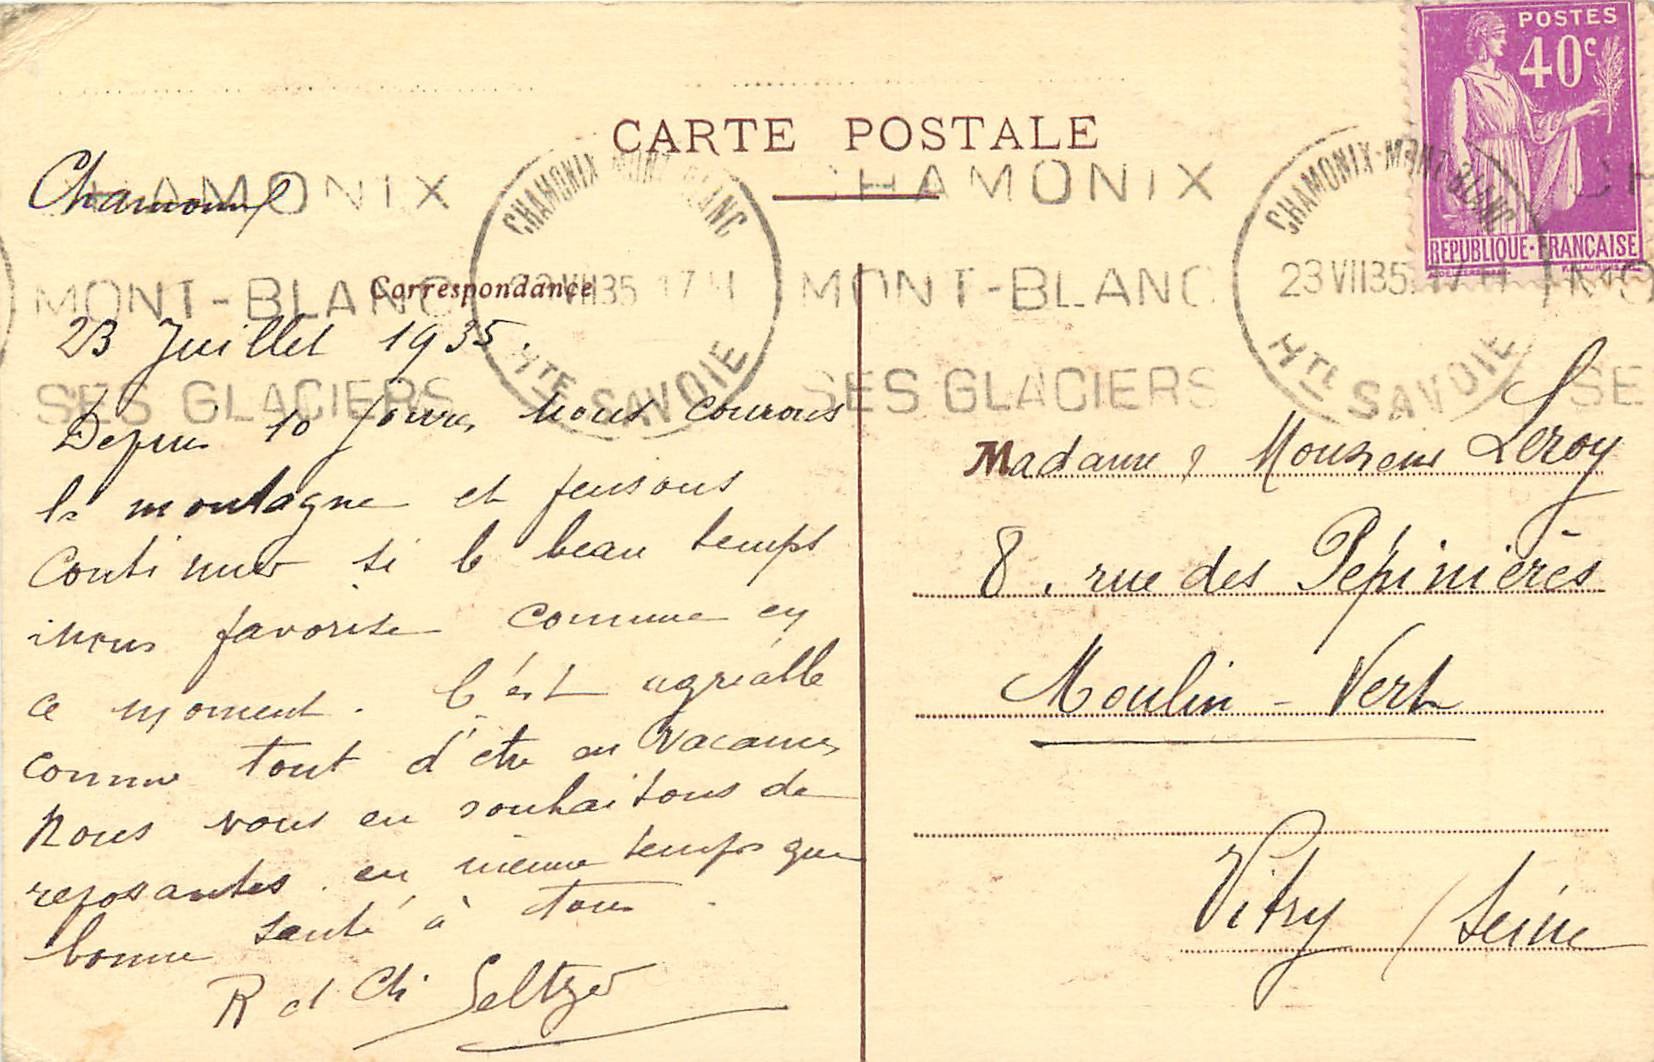 POSTES
40c
REPUBLIQUE-FRANÇAISE
CARTE POSTALE
CHAMONIX MONT-BLANC
23 VII 35 17 H
HTE SAVOIE
CHAMONIX
MONT-BLANC
SES GLACIERS
CHAMONIX-MONT-BLANC
23 VII 35 17 H
HTE SAVOIE
CHAMONIX
MONT-BLANC
SES GLACIERS
Correspondance
Chamonix
23 Juillet 1935.
Depuis 10 jours nous courons
la montagne et pensons
continuer si le beau temps
nous favorise comme en
ce moment. C'est agréable
comme tout d'être en vacances
Nous vous en souhaitons de
reposantes en même temps que
bonne santé à tous.
R et Ch Seltzer
Madame & Monsieur Leroy
8, rue des Pépinières
Moulin-Vert
Vitry / Seine